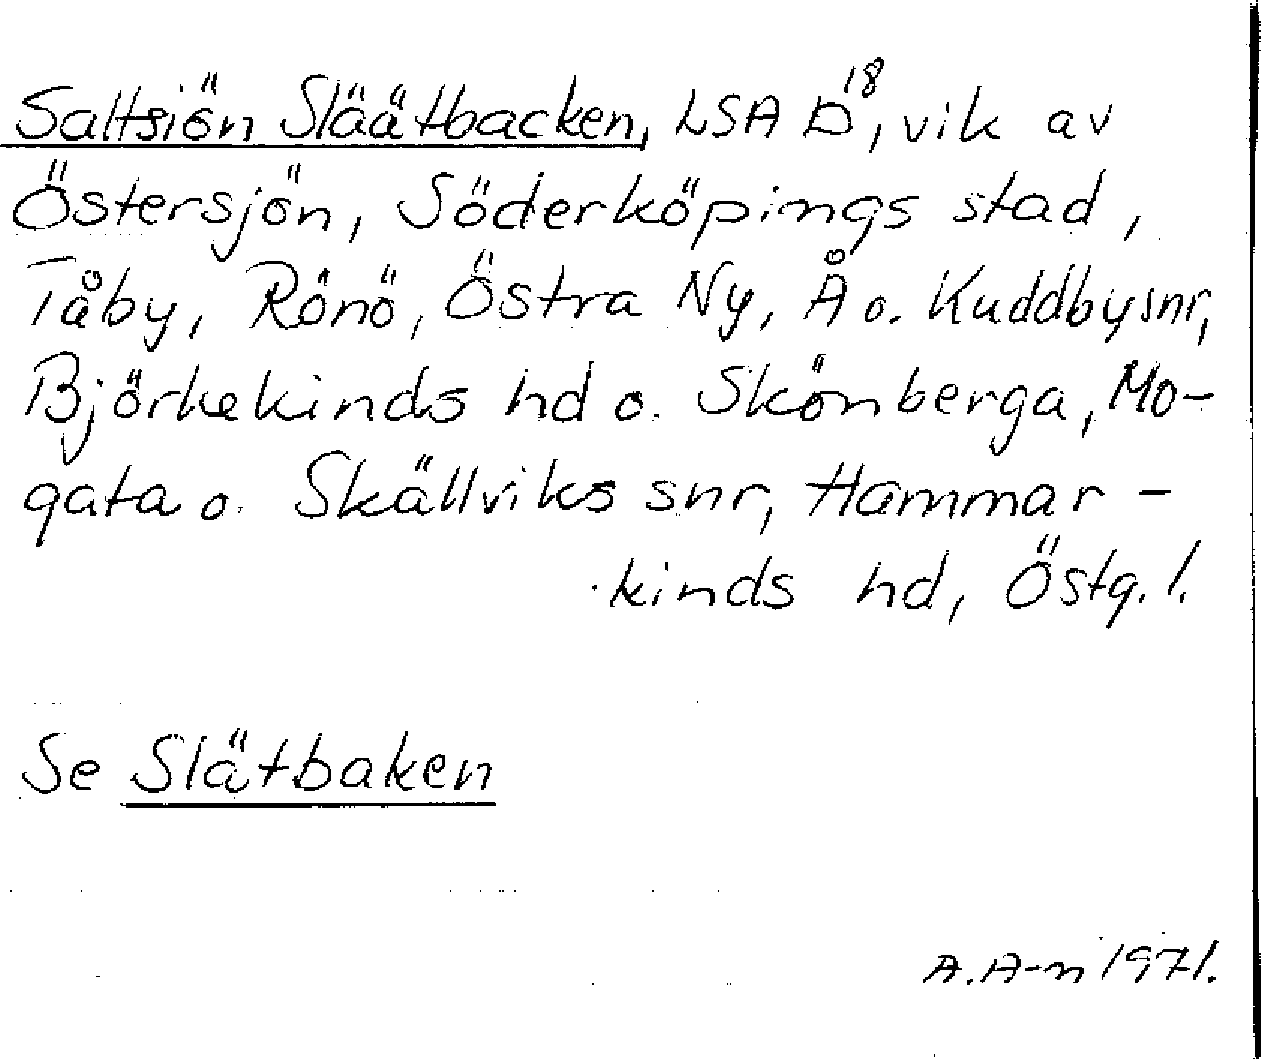 Saltsiön Släätbacken, LSA D18, vik av
Östersjön, Söderköpings stad,
Tåby, Rönö, Östra Ny, Å o. Kuddbysnr,
Björkekinds hd o. Skönberga, Mo-
gata o. Skällviks snr, Hammar-
kinds hd, Östg. l.
Se Slätbaken
A. A-n 1971.